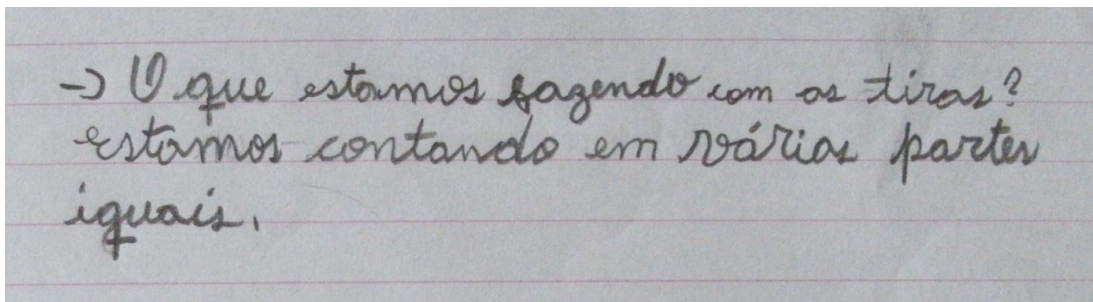 → O que estamos fazendo com as tiras?
Estamos contando em várias partes
iguais.